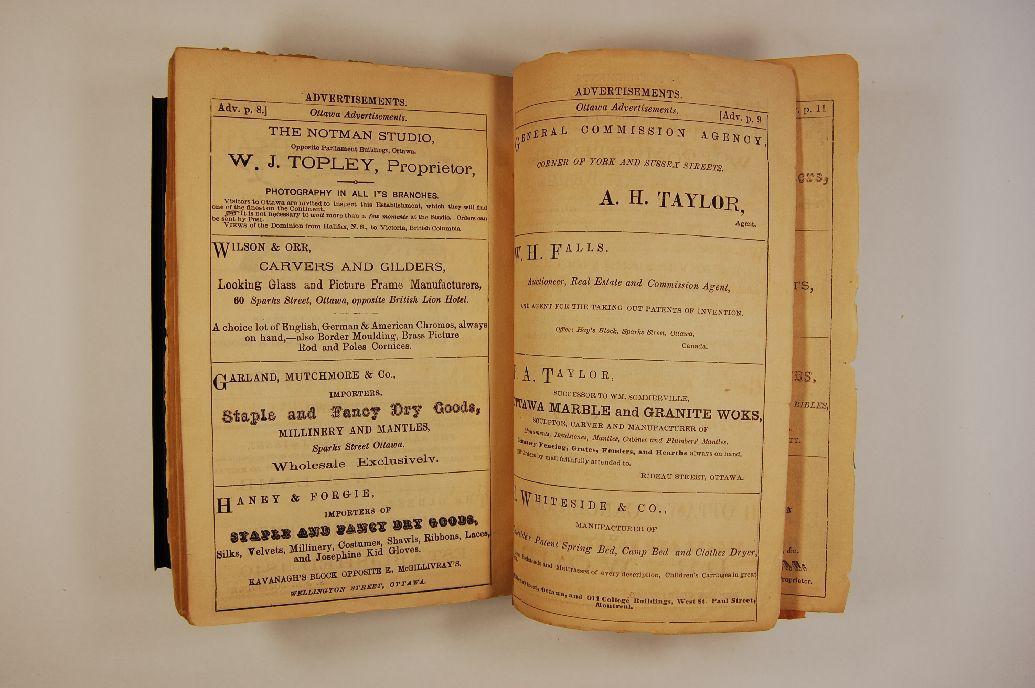 ADVERTISEMENTS.
Adv. p. 8.] Ottawa Advertisements.
THE NOTMAN STUDIO,
Opposite Parliament Buildings, Ottawa.
W. J. TOPLEY, Proprietor,
PHOTOGRAPHY IN ALL ITS BRANCHES.
Visitors to Ottawa are invited to inspect this Establishment, which they will find
one of the finest on the Continent.
It is not necessary to wait more than a few moments at the Studio. Orders can
be sent by Post.
VIEWS of the Dominion from Halifax, N. S., to Victoria, British Columbia.
WILSON & ORR,
CARVERS AND GILDERS,
Looking Glass and Picture Frame Manufacturers,
60 Sparks Street, Ottawa, opposite British Lion Hotel.
A choice lot of English, German & American Chromos, always
on hand,—also Border Moulding, Brass Picture
Rod and Poles Cornices.
GARLAND, MUTCHMORE & Co.,
IMPORTERS,
Staple and Fancy Dry Goods,
MILLINERY AND MANTLES,
Sparks Street Ottawa.
Wholesale Exclusively.
HANEY & FORGIE,
IMPORTERS OF
STAPLE AND FANCY DRY GOODS,
Silks, Velvets, Millinery, Costumes, Shawls, Ribbons, Laces,
and Josephine Kid Gloves.
KAVANAGH'S BLOCK OPPOSITE E. McGILLIVRAY'S.
WELLINGTON STREET, OTTAWA.
ADVERTISEMENTS.
Ottawa Advertisements. [Adv. p. 9
GENERAL COMMISSION AGENCY,
CORNER OF YORK AND SUSSEX STREETS.
A. H. TAYLOR,
Agent.
H. FALLS.
Auctioneer, Real Estate and Commission Agent,
AGENT FOR THE TAKING OUT PATENTS OF INVENTION.
Office: Hay's Block, Sparks Street, Ottawa,
Canada.
A. TAYLOR,
SUCCESSOR TO WM. SOMMERVILLE,
OTTAWA MARBLE and GRANITE WOKS,
SCULPTOR, CARVER AND MANUFACTURER OF
Monuments, Tombstones, Mantles, Cabinet and Plumbers' Mantles.
Fencing, Grates, Fenders, and Hearths always on hand.
Orders by mail faithfully attended to.
RIDEAU STREET, OTTAWA.
WHITESIDE & CO.,
MANUFACTURER OF
Patent Spring Bed, Camp Bed and Clothes Dryer,
and Mattrasses of every description, Children's Carriages in great
Ottawa, and Old College Buildings, West St. Paul Street,
Montreal.
p. 11
BIBLES,
&
&c.
Proprietor.